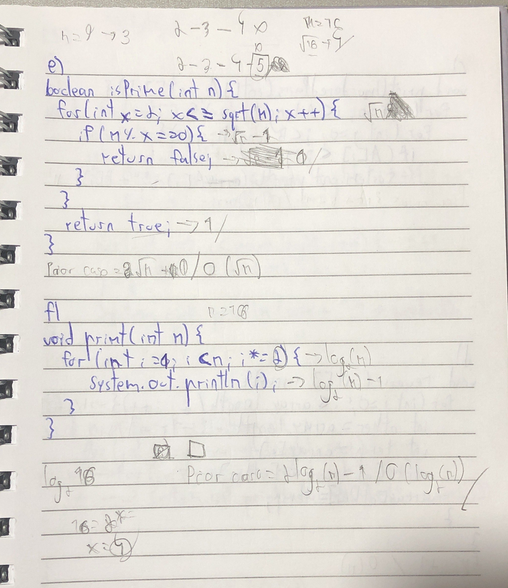 n=9 → 3 2-3-4x n=16
√16=4
n
2-3-4-5
e)
boolean isPrime(int n){
for(int x=2; x<= sqrt(n); x++){ √n
if(n% x==0){ → √n-1
return false; → 0/
}
}
return true; → 1/
}
Pior caso = 2√n + 0 / O(√n)
f) n=16
void print(int n){
for (int i=1; i<n; i*=2){ → log₂(n)
System.out.println(i); → log₂(n)-1
}
}
log₂ 16 Pior caso = 2log₂(n)-1 / O(log₂(n)) /
16=2ˣ
x=4